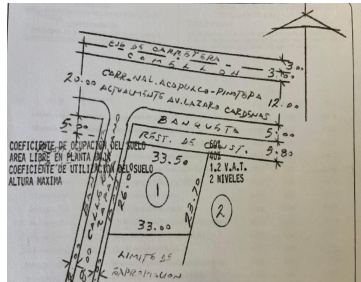 EJE DE CARRETERA
3.00
CAMELLON
3.00
20.00
CARR. NAL. ACAPULCO-PINOTEPA
12.00
ACTUALMENTE AV. LAZARO CARDENAS
BANQUETA
5.00
5.20
REST. DE CONST.
5.80
COEFICIENTE DE OCUPACION DEL SUELO
60%
AREA LIBRE EN PLANTA BAJA
40%
33.50
COEFICIENTE DE UTILIZACION DEL SUELO
1.2 V.A.T.
ALTURA MAXIMA
2 NIVELES
CALLE
26.00
1
23.70
2
33.00
LIMITE DE
EXPROPIACION